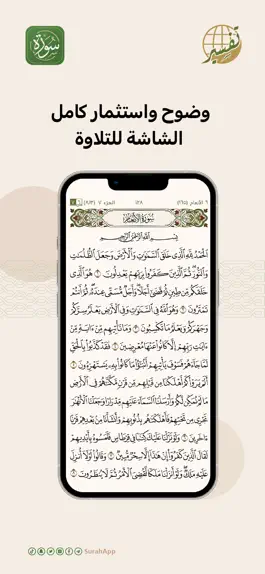 تفسير
سورة
وضوح واستثمار كامل
الشاشة للتلاوة
٦ الأنعام (١٦٥) ١٢٨ الجزء ٧
سُورَةُ الأَنْعَامِ
بِسْمِ ٱللَّهِ ٱلرَّحْمَٰنِ ٱلرَّحِيمِ
ٱلْحَمْدُ لِلَّهِ ٱلَّذِى خَلَقَ ٱلسَّمَٰوَٰتِ وَٱلْأَرْضَ وَجَعَلَ ٱلظُّلُمَٰتِ
وَٱلنُّورَ ثُمَّ ٱلَّذِينَ كَفَرُوا۟ بِرَبِّهِمْ يَعْدِلُونَ ١ هُوَ ٱلَّذِى
خَلَقَكُم مِّن طِينٍ ثُمَّ قَضَىٰٓ أَجَلًا وَأَجَلٌ مُّسَمًّى عِندَهُۥ ثُمَّ أَنتُمْ
تَمْتَرُونَ ٢ وَهُوَ ٱللَّهُ فِى ٱلسَّمَٰوَٰتِ وَفِى ٱلْأَرْضِ يَعْلَمُ سِرَّكُمْ
وَجَهْرَكُمْ وَيَعْلَمُ مَا تَكْسِبُونَ ٣ وَمَا تَأْتِيهِم مِّنْ ءَايَةٍ مِّنْ
ءَايَٰتِ رَبِّهِمْ إِلَّا كَانُوا۟ عَنْهَا مُعْرِضِينَ ٤ فَقَدْ كَذَّبُوا۟ بِٱلْحَقِّ
لَمَّا جَآءَهُمْ فَسَوْفَ يَأْتِيهِمْ أَنۢبَٰٓؤُا۟ مَا كَانُوا۟ بِهِۦ يَسْتَهْزِءُونَ ٥
أَلَمْ يَرَوْا۟ كَمْ أَهْلَكْنَا مِن قَبْلِهِم مِّن قَرْنٍ مَّكَّنَّٰهُمْ فِى ٱلْأَرْضِ
مَا لَمْ نُمَكِّن لَّكُمْ وَأَرْسَلْنَا ٱلسَّمَآءَ عَلَيْهِم مِّدْرَارًا وَجَعَلْنَا ٱلْأَنْهَٰرَ
تَجْرِى مِن تَحْتِهِمْ فَأَهْلَكْنَٰهُم بِذُنُوبِهِمْ وَأَنشَأْنَا مِنۢ بَعْدِهِمْ قَرْنًا
ءَاخَرِينَ ٦ وَلَوْ نَزَّلْنَا عَلَيْكَ كِتَٰبًا فِى قِرْطَاسٍ فَلَمَسُوهُ بِأَيْدِيهِمْ
لَقَالَ ٱلَّذِينَ كَفَرُوٓا۟ إِنْ هَٰذَآ إِلَّا سِحْرٌ مُّبِينٌ ٧ وَقَالُوا۟ لَوْلَآ أُنزِلَ
عَلَيْهِ مَلَكٌ وَلَوْ أَنزَلْنَا مَلَكًا لَّقُضِىَ ٱلْأَمْرُ ثُمَّ لَا يُنظَرُونَ ٨
SurahApp